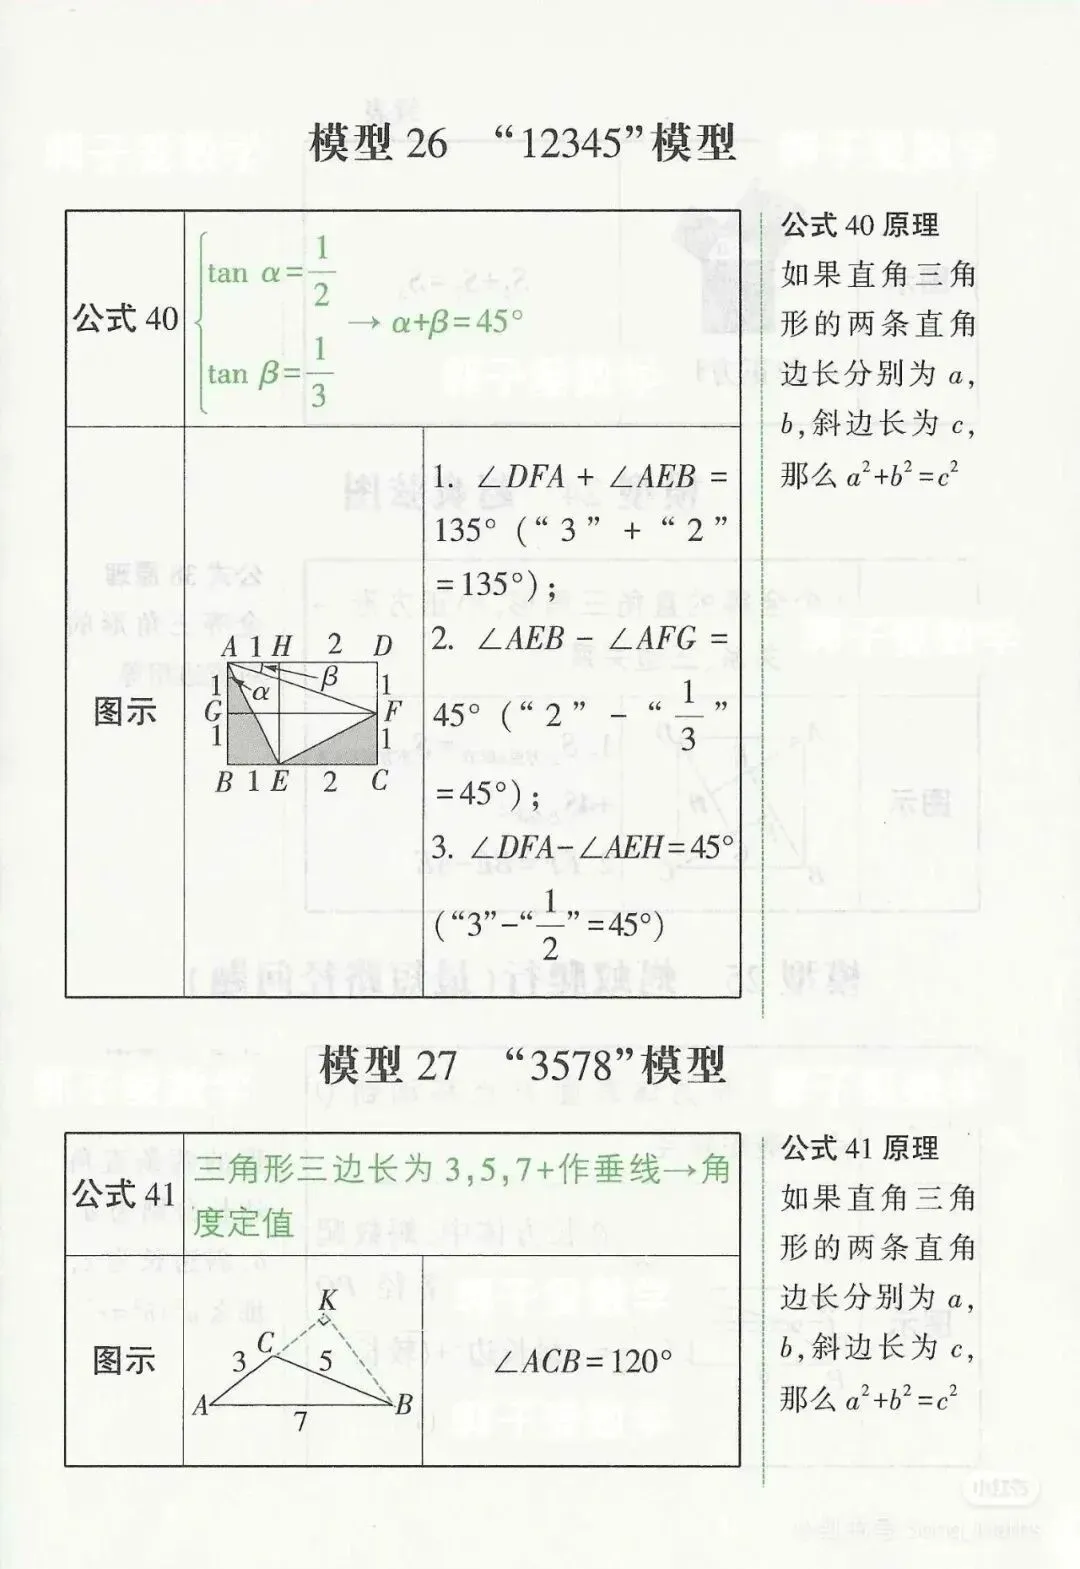 模型 26 “12345”模型
公式 40
tan α=1/2
tan β=1/3
→ α+β=45°
图示
A 1 H 2 D
1 α β 1
G F
1 1
B 1 E 2 C
1. ∠DFA + ∠AEB =
135° (“3” + “2”
=135°);
2. ∠AEB - ∠AFG =
45° (“2” - “1/3”
=45°);
3. ∠DFA-∠AEH=45°
(“3”-“1/2”=45°)
公式 40 原理
如果直角三角
形的两条直角
边长分别为 a,
b,斜边长为 c,
那么 a²+b²=c²
模型 27 “3578”模型
公式 41
三角形三边长为 3,5,7+作垂线→角
度定值
图示
K
3 C 5
A 7 B
∠ACB=120°
公式 41 原理
如果直角三角
形的两条直角
边长分别为 a,
b,斜边长为 c,
那么 a²+b²=c²